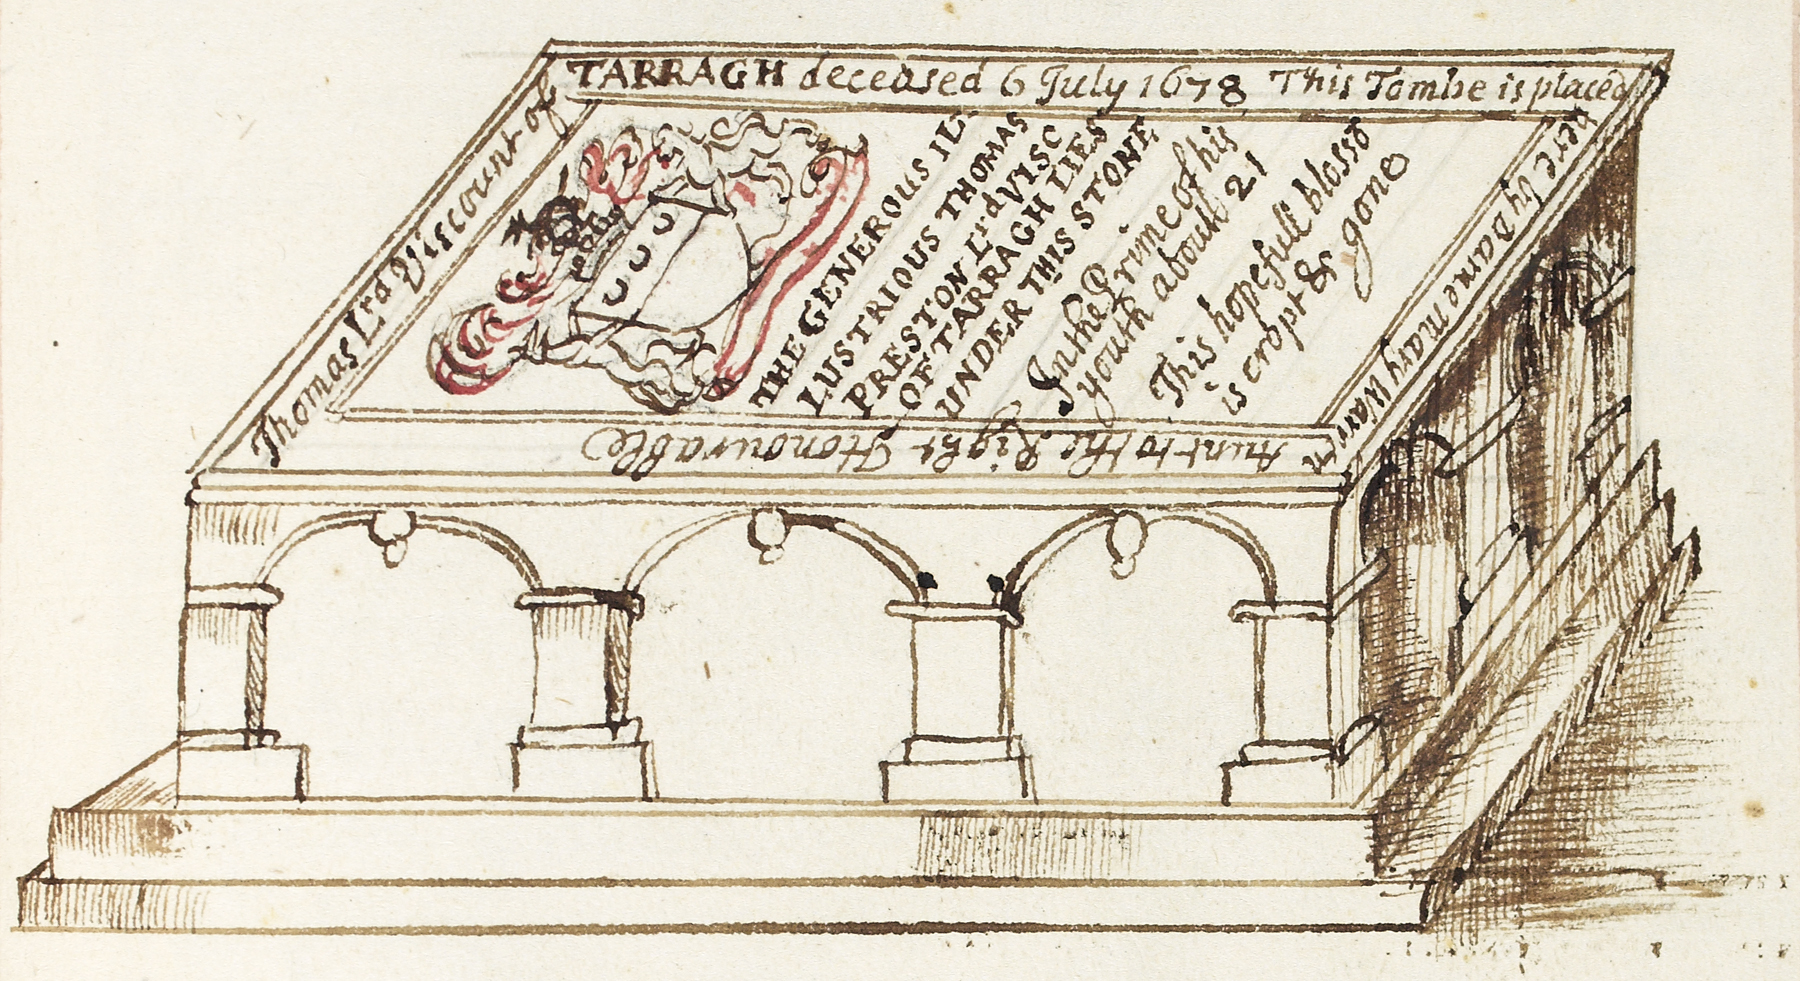 Thomas Lrd Viscount of
TARRAGH deceased 6 July 1678 This Tombe is placed
here by Dame mary Warren
Aunt to the Right Honourable
THE GENEROUS IL
LUSTRIOUS THOMAS
PRESTON Lrd VISC
OF TARRAGH LIES
UNDER THIS STONE
In the Prime of his
youth about 21
This hopefull blosso
is cropt & gone